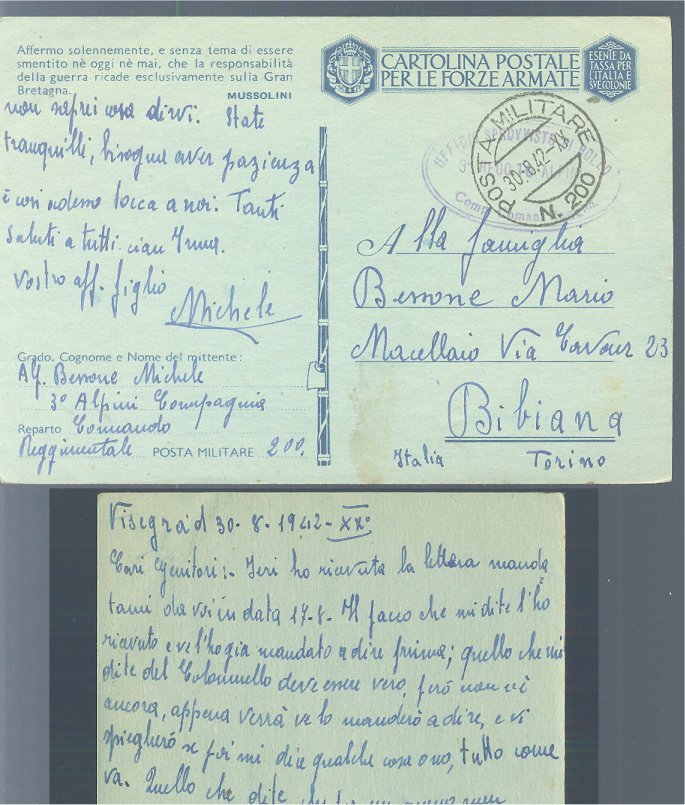 Affermo solennemente, e senza tema di essere
smentito nè oggi nè mai, che la responsabilità
della guerra ricade esclusivamente sulla Gran
Bretagna.
MUSSOLINI
non saprei cosa dirvi. State
tranquilli, bisogna aver pazienza
e così adesso tocca a noi. Tanti
saluti a tutti ciau Irma.
Vostro aff. figlio
Michele
Grado, Cognome e Nome del mittente:
Alp. Bessone Michele
3° Alpini Compagnia
Reparto Comando
Reggimentale POSTA MILITARE 200.
CARTOLINA POSTALE
PER LE FORZE ARMATE
ESENTE DA
TASSA PER
L'ITALIA E
SVE COLONIE
POSTA MILITARE
30.8.42
N. 200
UFFICIO SPROVVISTO DI BOLLO
Alla famiglia
Bessone Mario
Macellaio Via Cavour 23
Bibiana
Italia Torino
Visegrad 30-8-1942-XX°
Cari Genitori:- Ieri ho ricevuta la lettera manda
tami da voi in data 17-8. Il pacco che mi dite l'ho
ricevuto e ve l'ho gia mandato a dire prima; quello che mi
dite del Colonnello deve essere vero, però non c'è
ancora, appena verrà ve lo manderò a dire, e vi
spiegherò se poi mi dice qualche cosa o no, tutto come
va. Quello che dite che